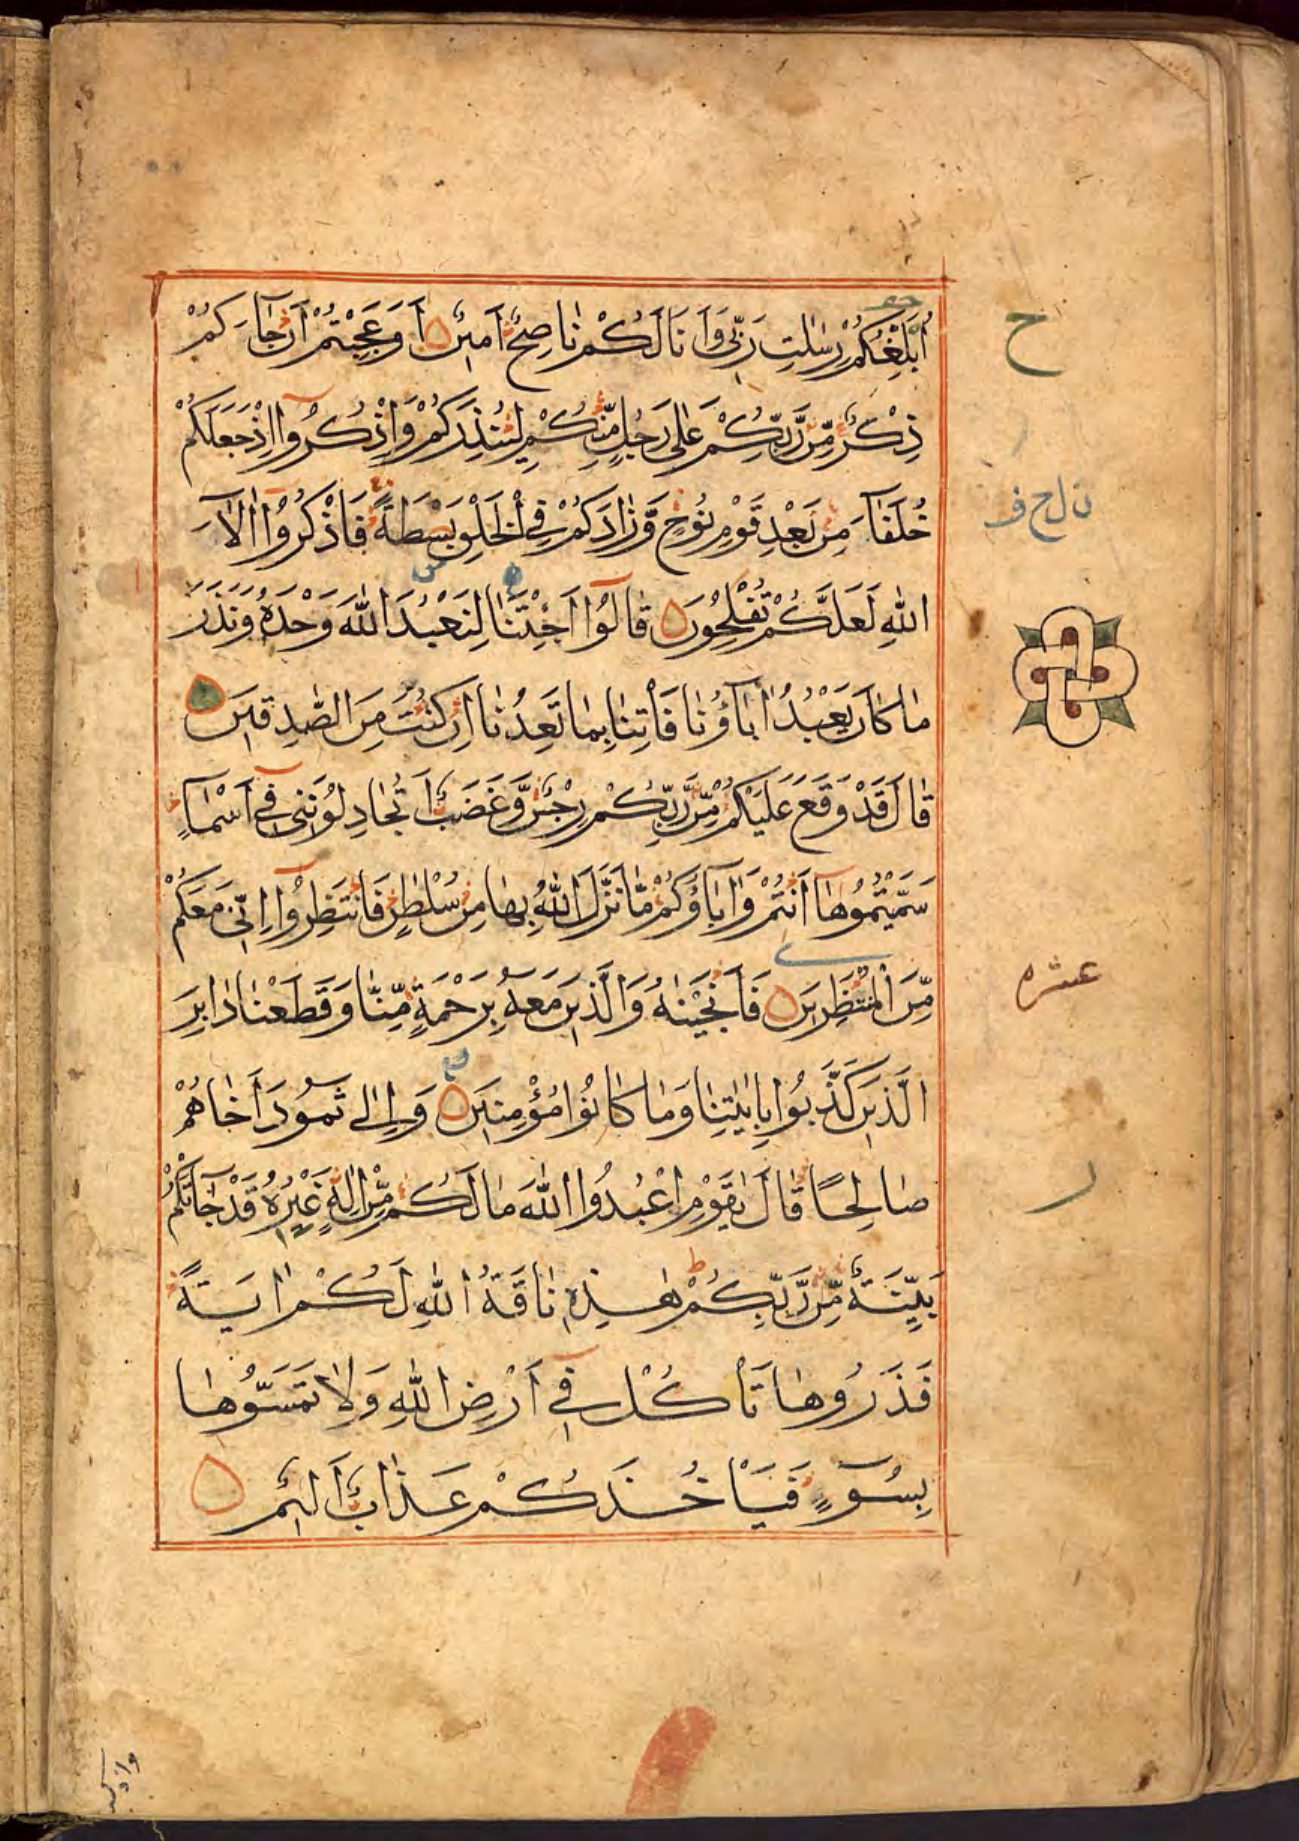 اُبَلِّغُكُمْ رِسٰلٰتِ رَبِّي وَاَنَا لَكُمْ نَاصِحٌ اَمِينٌ اَوَعَجِبْتُمْ اَنْ جَآءَكُمْ
ح
ذِكْرٌ مِّنْ رَّبِّكُمْ عَلٰى رَجُلٍ مِّنْكُمْ لِيُنْذِرَكُمْ وَاذْكُرُوٓا اِذْ جَعَلَكُمْ
خُلَفَآءَ مِنْ بَعْدِ قَوْمِ نُوحٍ وَّزَادَكُمْ فِي الْخَلْقِ بَسْطَةً فَاذْكُرُوٓا اٰلَآءَ
اللّٰهِ لَعَلَّكُمْ تُفْلِحُونَ قَالُوٓا اَجِئْتَنَا لِنَعْبُدَ اللّٰهَ وَحْدَهُ وَنَذَرَ
مَا كَانَ يَعْبُدُ اٰبَآؤُنَا فَأْتِنَا بِمَا تَعِدُنَا اِنْ كُنْتَ مِنَ الصّٰدِقِينَ
قَالَ قَدْ وَقَعَ عَلَيْكُمْ مِّنْ رَّبِّكُمْ رِجْسٌ وَّغَضَبٌ اَتُجَادِلُونَنِي فِيٓ اَسْمَآءٍ
سَمَّيْتُمُوهَآ اَنْتُمْ وَاٰبَآؤُكُمْ مَّا نَزَّلَ اللّٰهُ بِهَا مِنْ سُلْطٰنٍ فَانْتَظِرُوٓا اِنِّي مَعَكُمْ
مِّنَ الْمُنْتَظِرِينَ فَاَنْجَيْنٰهُ وَالَّذِينَ مَعَهُ بِرَحْمَةٍ مِّنَّا وَقَطَعْنَا دَابِرَ
عشره
الَّذِينَ كَذَّبُوا بِاٰيٰتِنَا وَمَا كَانُوا مُؤْمِنِينَ وَاِلٰى ثَمُودَ اَخَاهُمْ
صَالِحًا قَالَ يٰقَوْمِ اعْبُدُوا اللّٰهَ مَا لَكُمْ مِّنْ اِلٰهٍ غَيْرُهُ قَدْ جَآءَتْكُمْ
بَيِّنَةٌ مِّنْ رَّبِّكُمْ هٰذِهِ نَاقَةُ اللّٰهِ لَكُمْ اٰيَةً
فَذَرُوهَا تَأْكُلْ فِيٓ اَرْضِ اللّٰهِ وَلَا تَمَسُّوهَا
بِسُوٓءٍ فَيَأْخُذَكُمْ عَذَابٌ اَلِيمٌ
واذكر